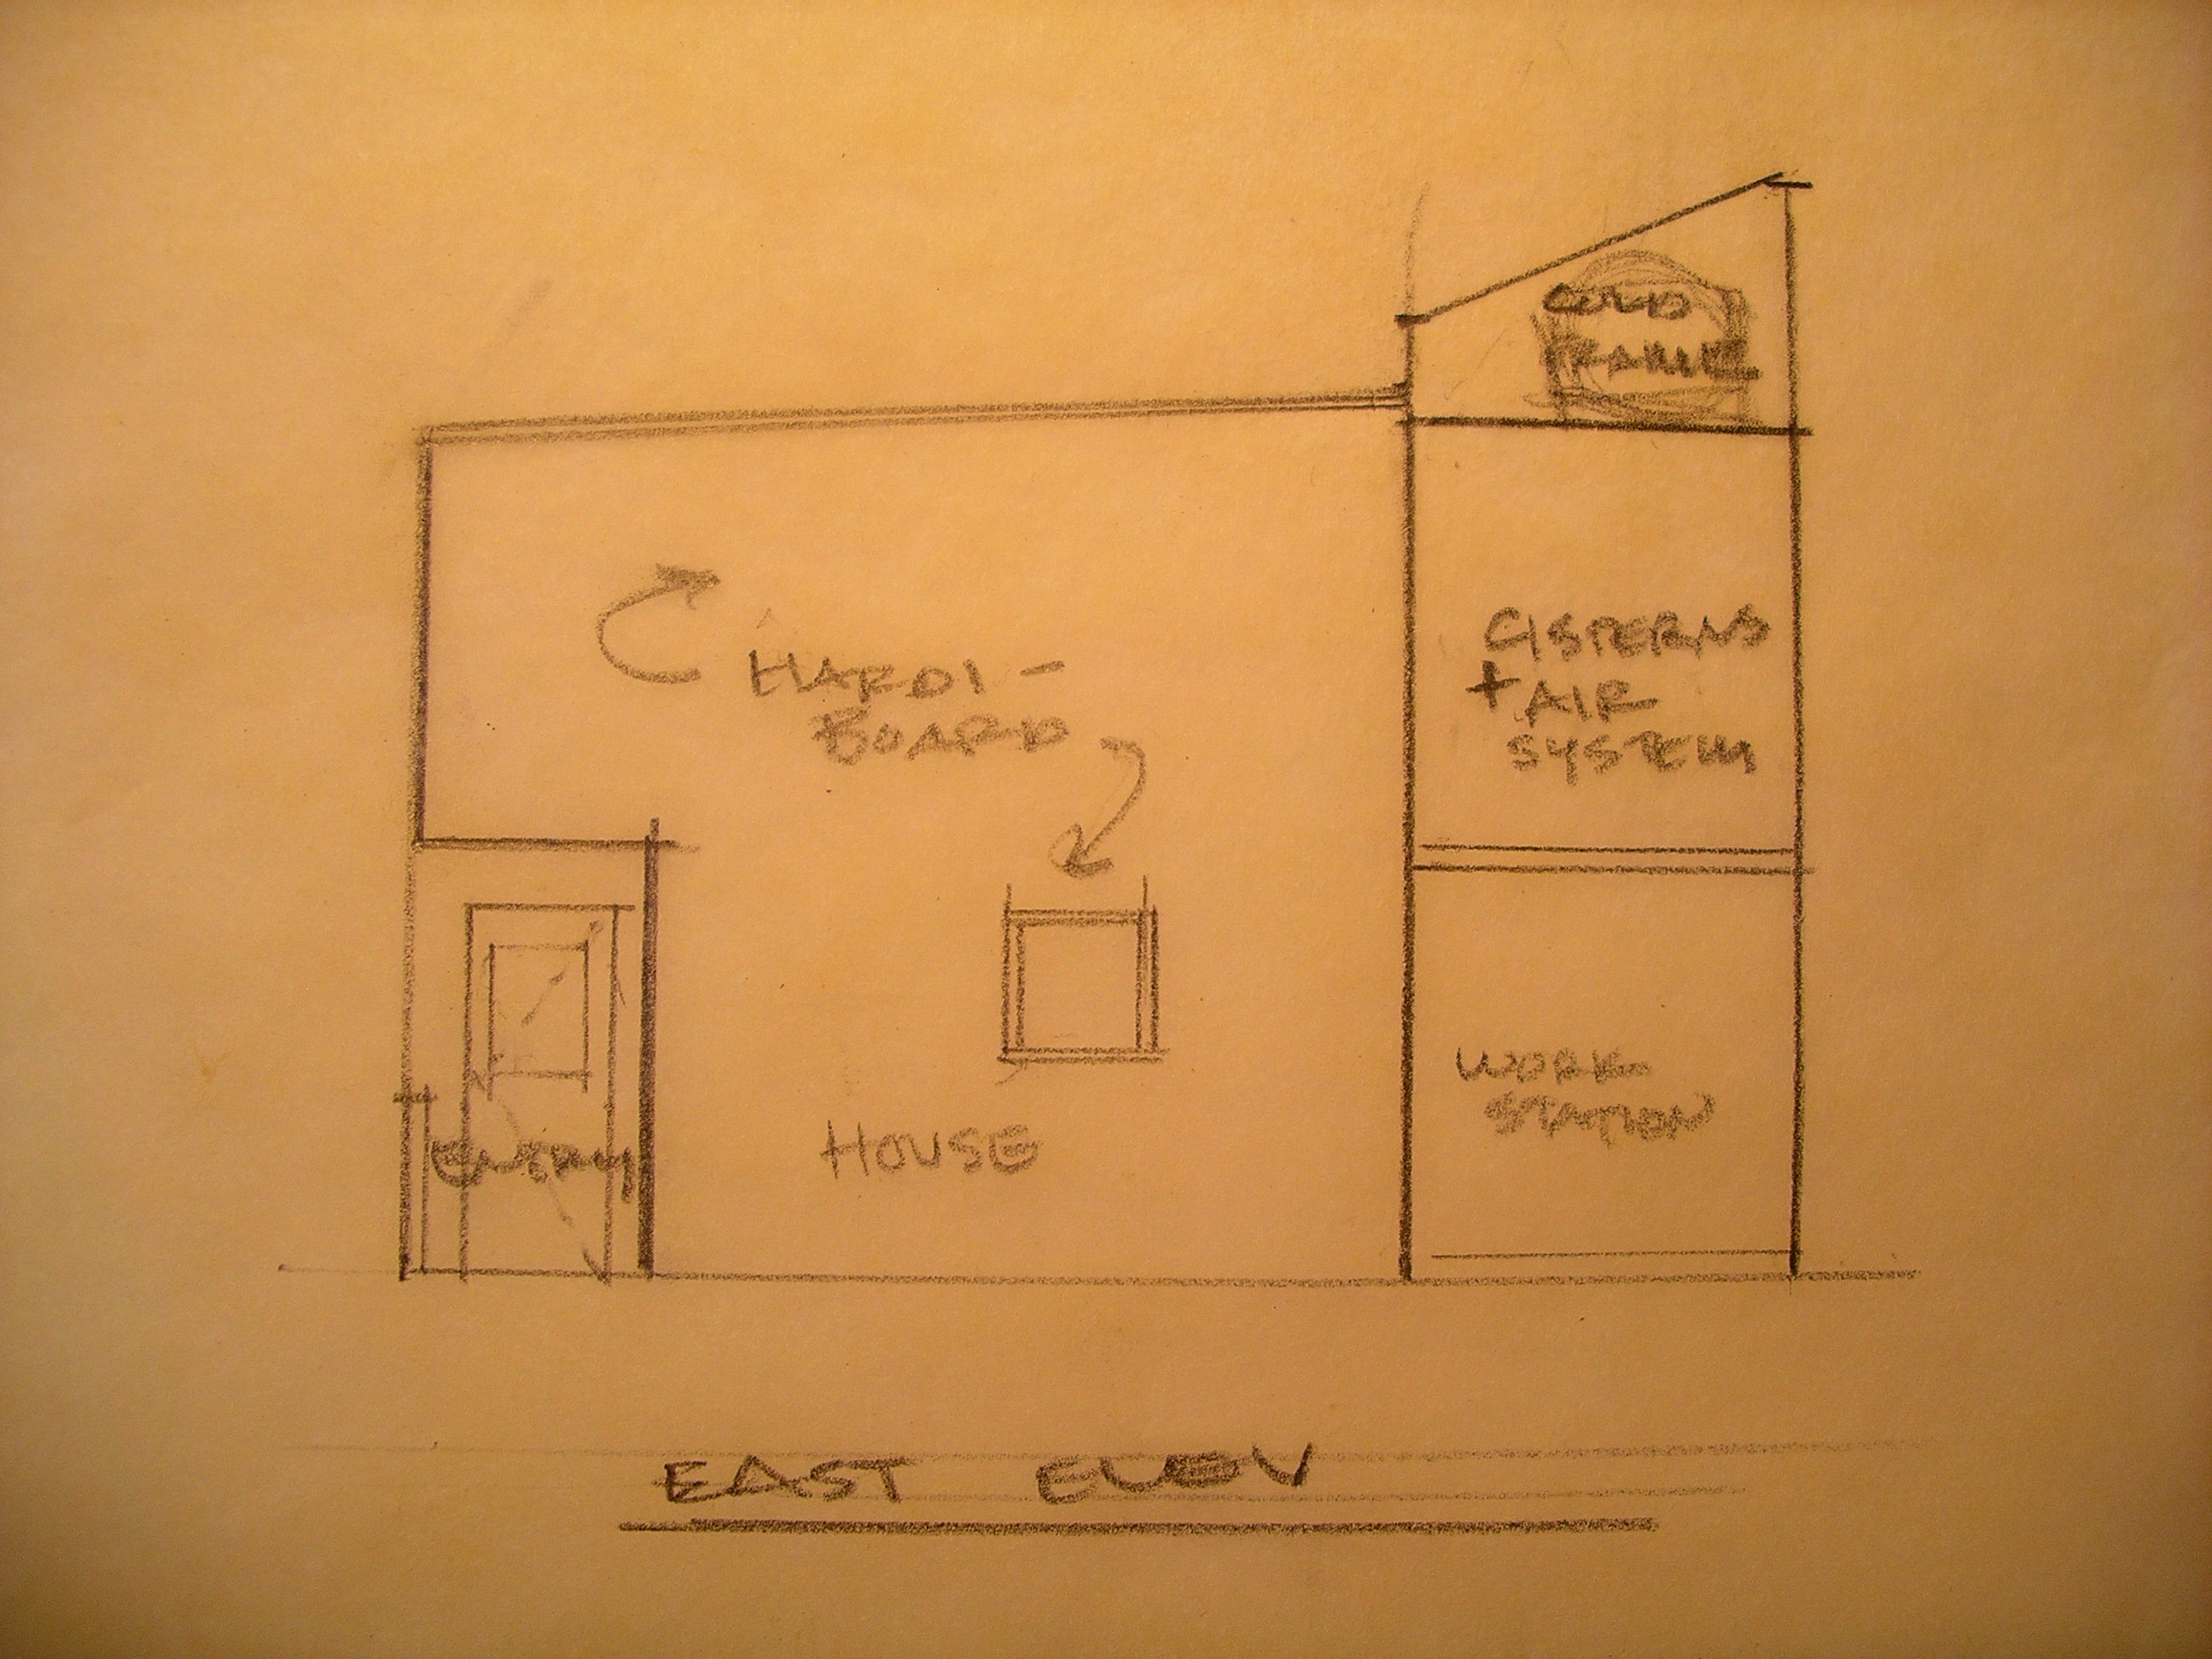 COLD
FRAME
HARDI-
BOARD
CISTERNS
+ AIR
SYSTEM
WORK
STATION
ENTRY
HOUSE
EAST ELEV